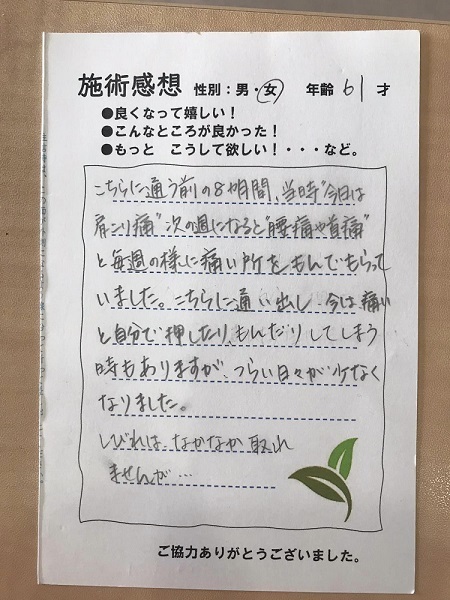 施術感想 性別：男・女 年齢 61 才
●良くなって嬉しい！
●こんなところが良かった！
●もっと こうして欲しい！・・・など。
こちらに通う前の8ヶ月間、当時"今日は
肩こり痛"次の週になると"腰痛や首痛"
と毎週の様に痛い所をもんでもらって
いました。こちらに通い出し 今は痛い
と自分で押したり、もんだりしてしまう
時もありますが、つらい日々が少なく
なりました。
しびれは、なかなか取れ
ませんが…
ご協力ありがとうございました。